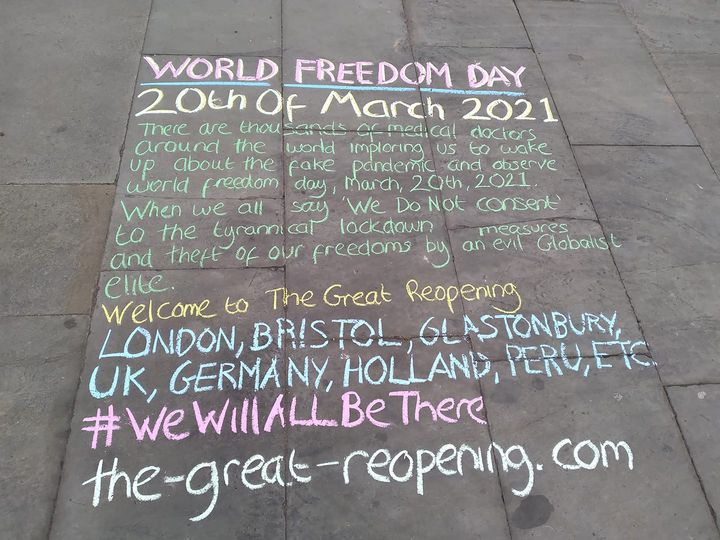 WORLD FREEDOM DAY
20th Of March 2021
There are thousands of medical doctors
around the world imploring us to wake
up about the fake pandemic and observe
world freedom day, March, 20th, 2021.
When we all say 'We Do Not consent'
to the tyrannical lockdown measures
and theft of our freedoms by an evil Globalist
elite.
Welcome to The Great Reopening
LONDON, BRISTOL, GLASTONBURY,
UK, GERMANY, HOLLAND, PERU, ETC
#WeWillALLBeThere
the-great-reopening.com